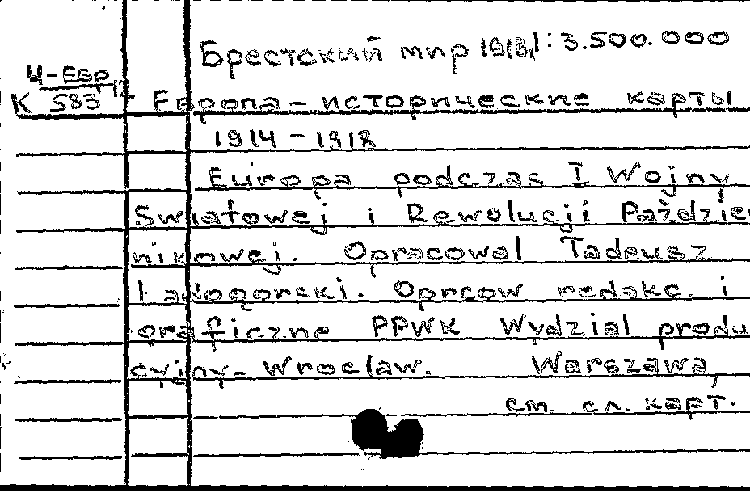 Брестский мир 1918, 1:3.500.000
Ч-Евр
К 583
Европа - исторические карты
1914 - 1918
Europa podczas I Wojny
Swiatowej i Rewolucji Paździer
nikowej. Opracowal Tadeusz
Ladogorski. Opracow redakc. i
graficzne PPWK Wydzial produ
cyjny - Wrocław. Warszawa,
см. сл. карт.